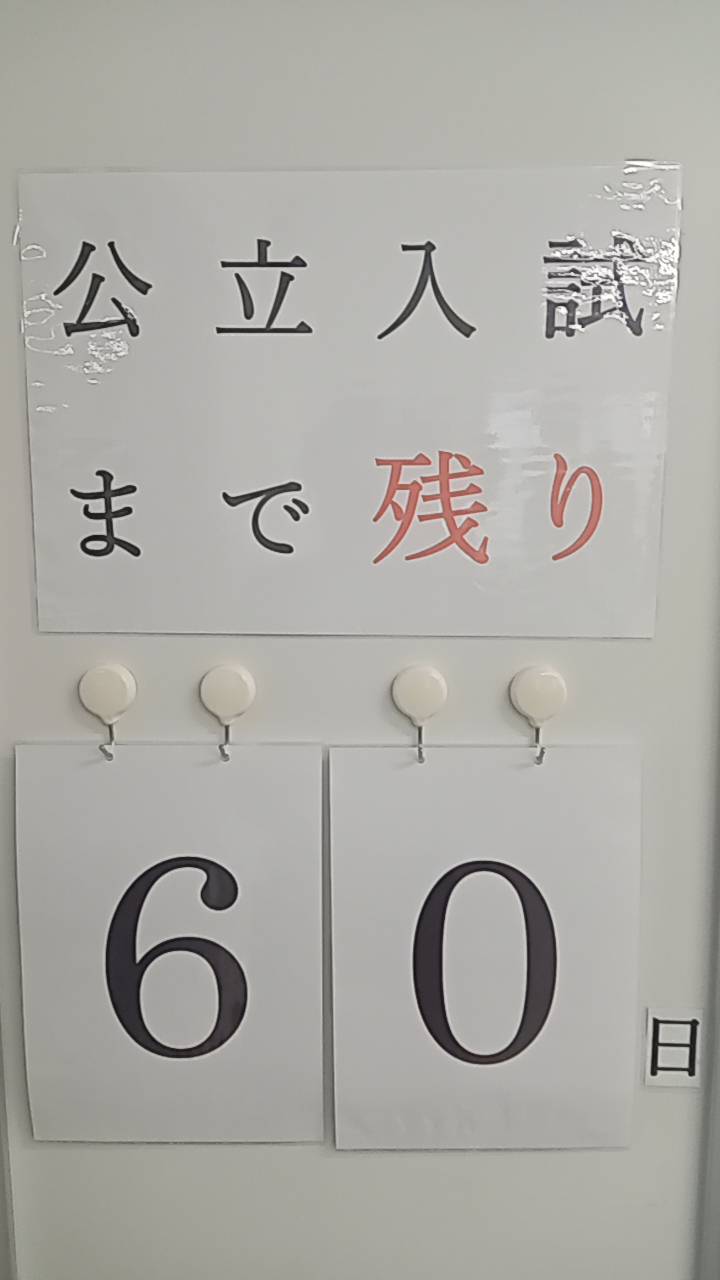 公立入試
まで残り
60日